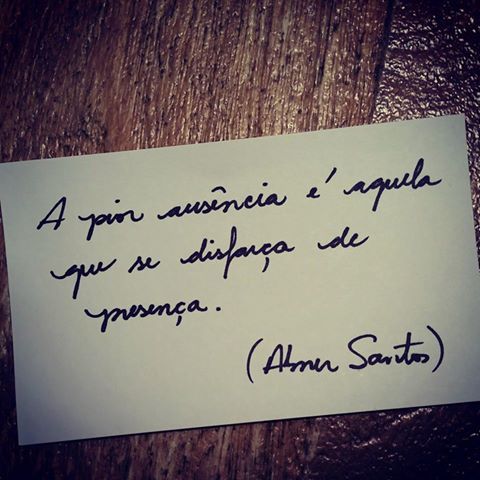 A pior ausência é aquela
que se disfarça de
presença.
(Abner Santos)